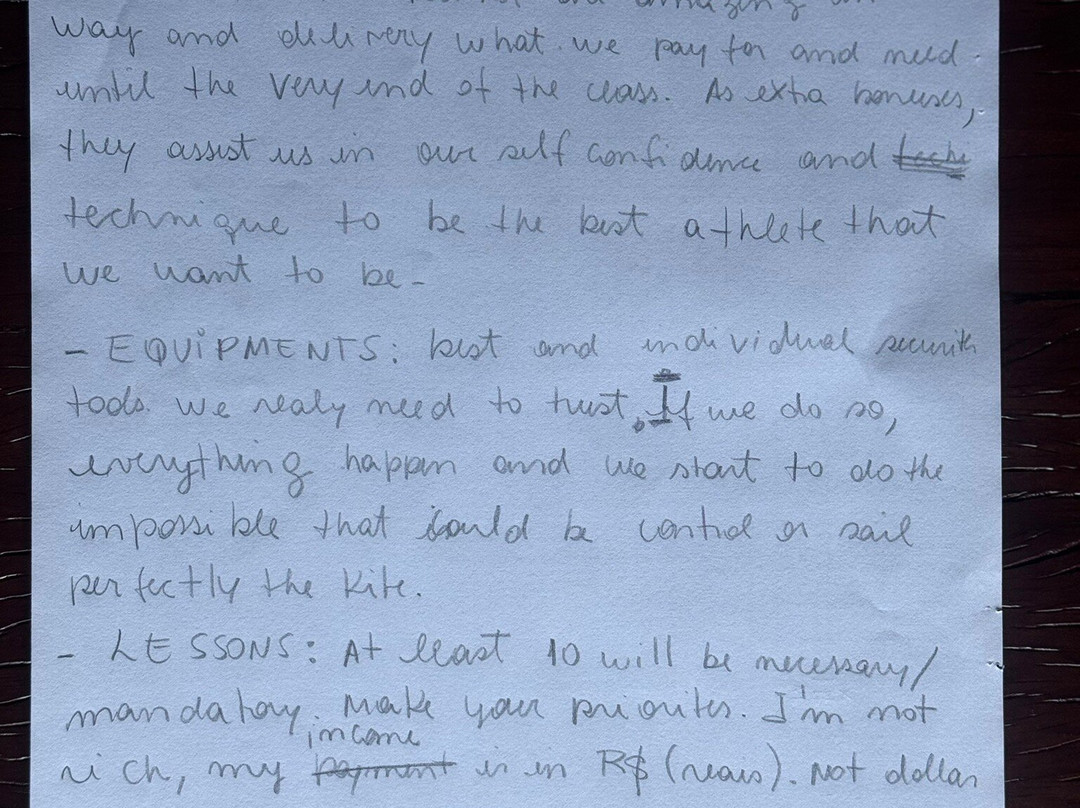 way and delivery what we pay for and need
until the very end of the class. As extra bonuses,
they assist us in our self confidence and
technique to be the best athlete that
we want to be -
- EQUiPMENTS: best and individual
tools. we realy need to trust. If we do so,
everything happen and we start to do the
impossible that could be control or sail
perfectly the kite.
- LESSONS: At least 10 will be necessary/
mandatory. Make your priorites. I'm not
income
rich, my payment is in R$ (reais). Not dollar